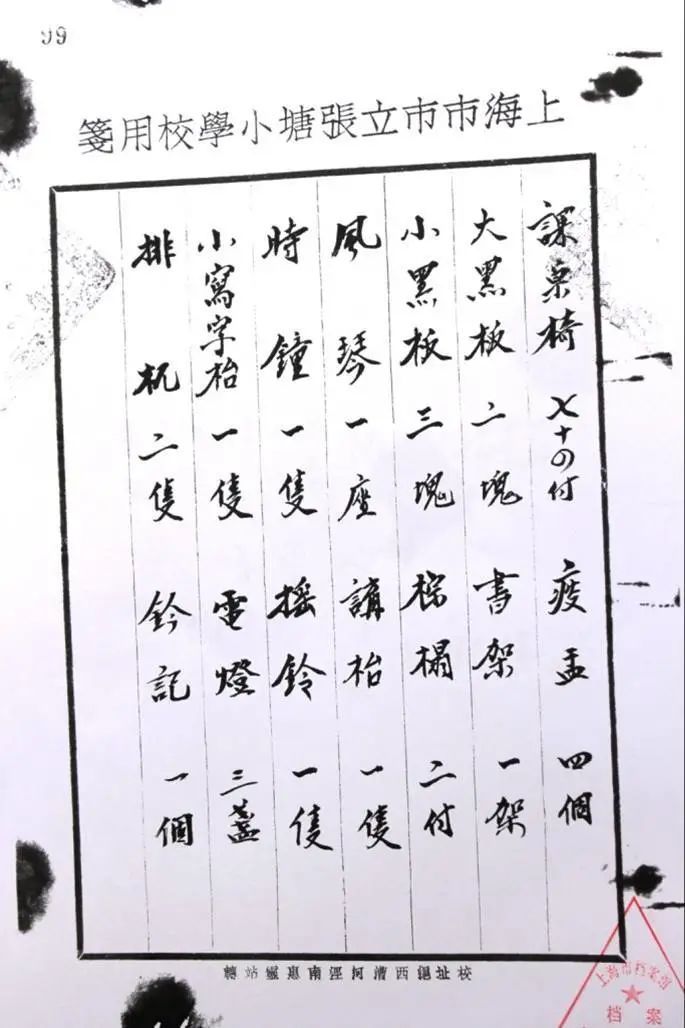 99
上海市市立張塘小學校用箋
課桌椅 付 痰盂 四個
大黑板 二塊 書架 一架
小黑板 三塊 棕榻 二付
風琴 一座 講枱 一隻
時鐘 一隻 搖鈴 一隻
小寫字枱 一隻 電燈 三盞
排杌 二隻 鈐記 一個
校址滬西漕河涇南惠靈站轉
上海市档案馆
档案